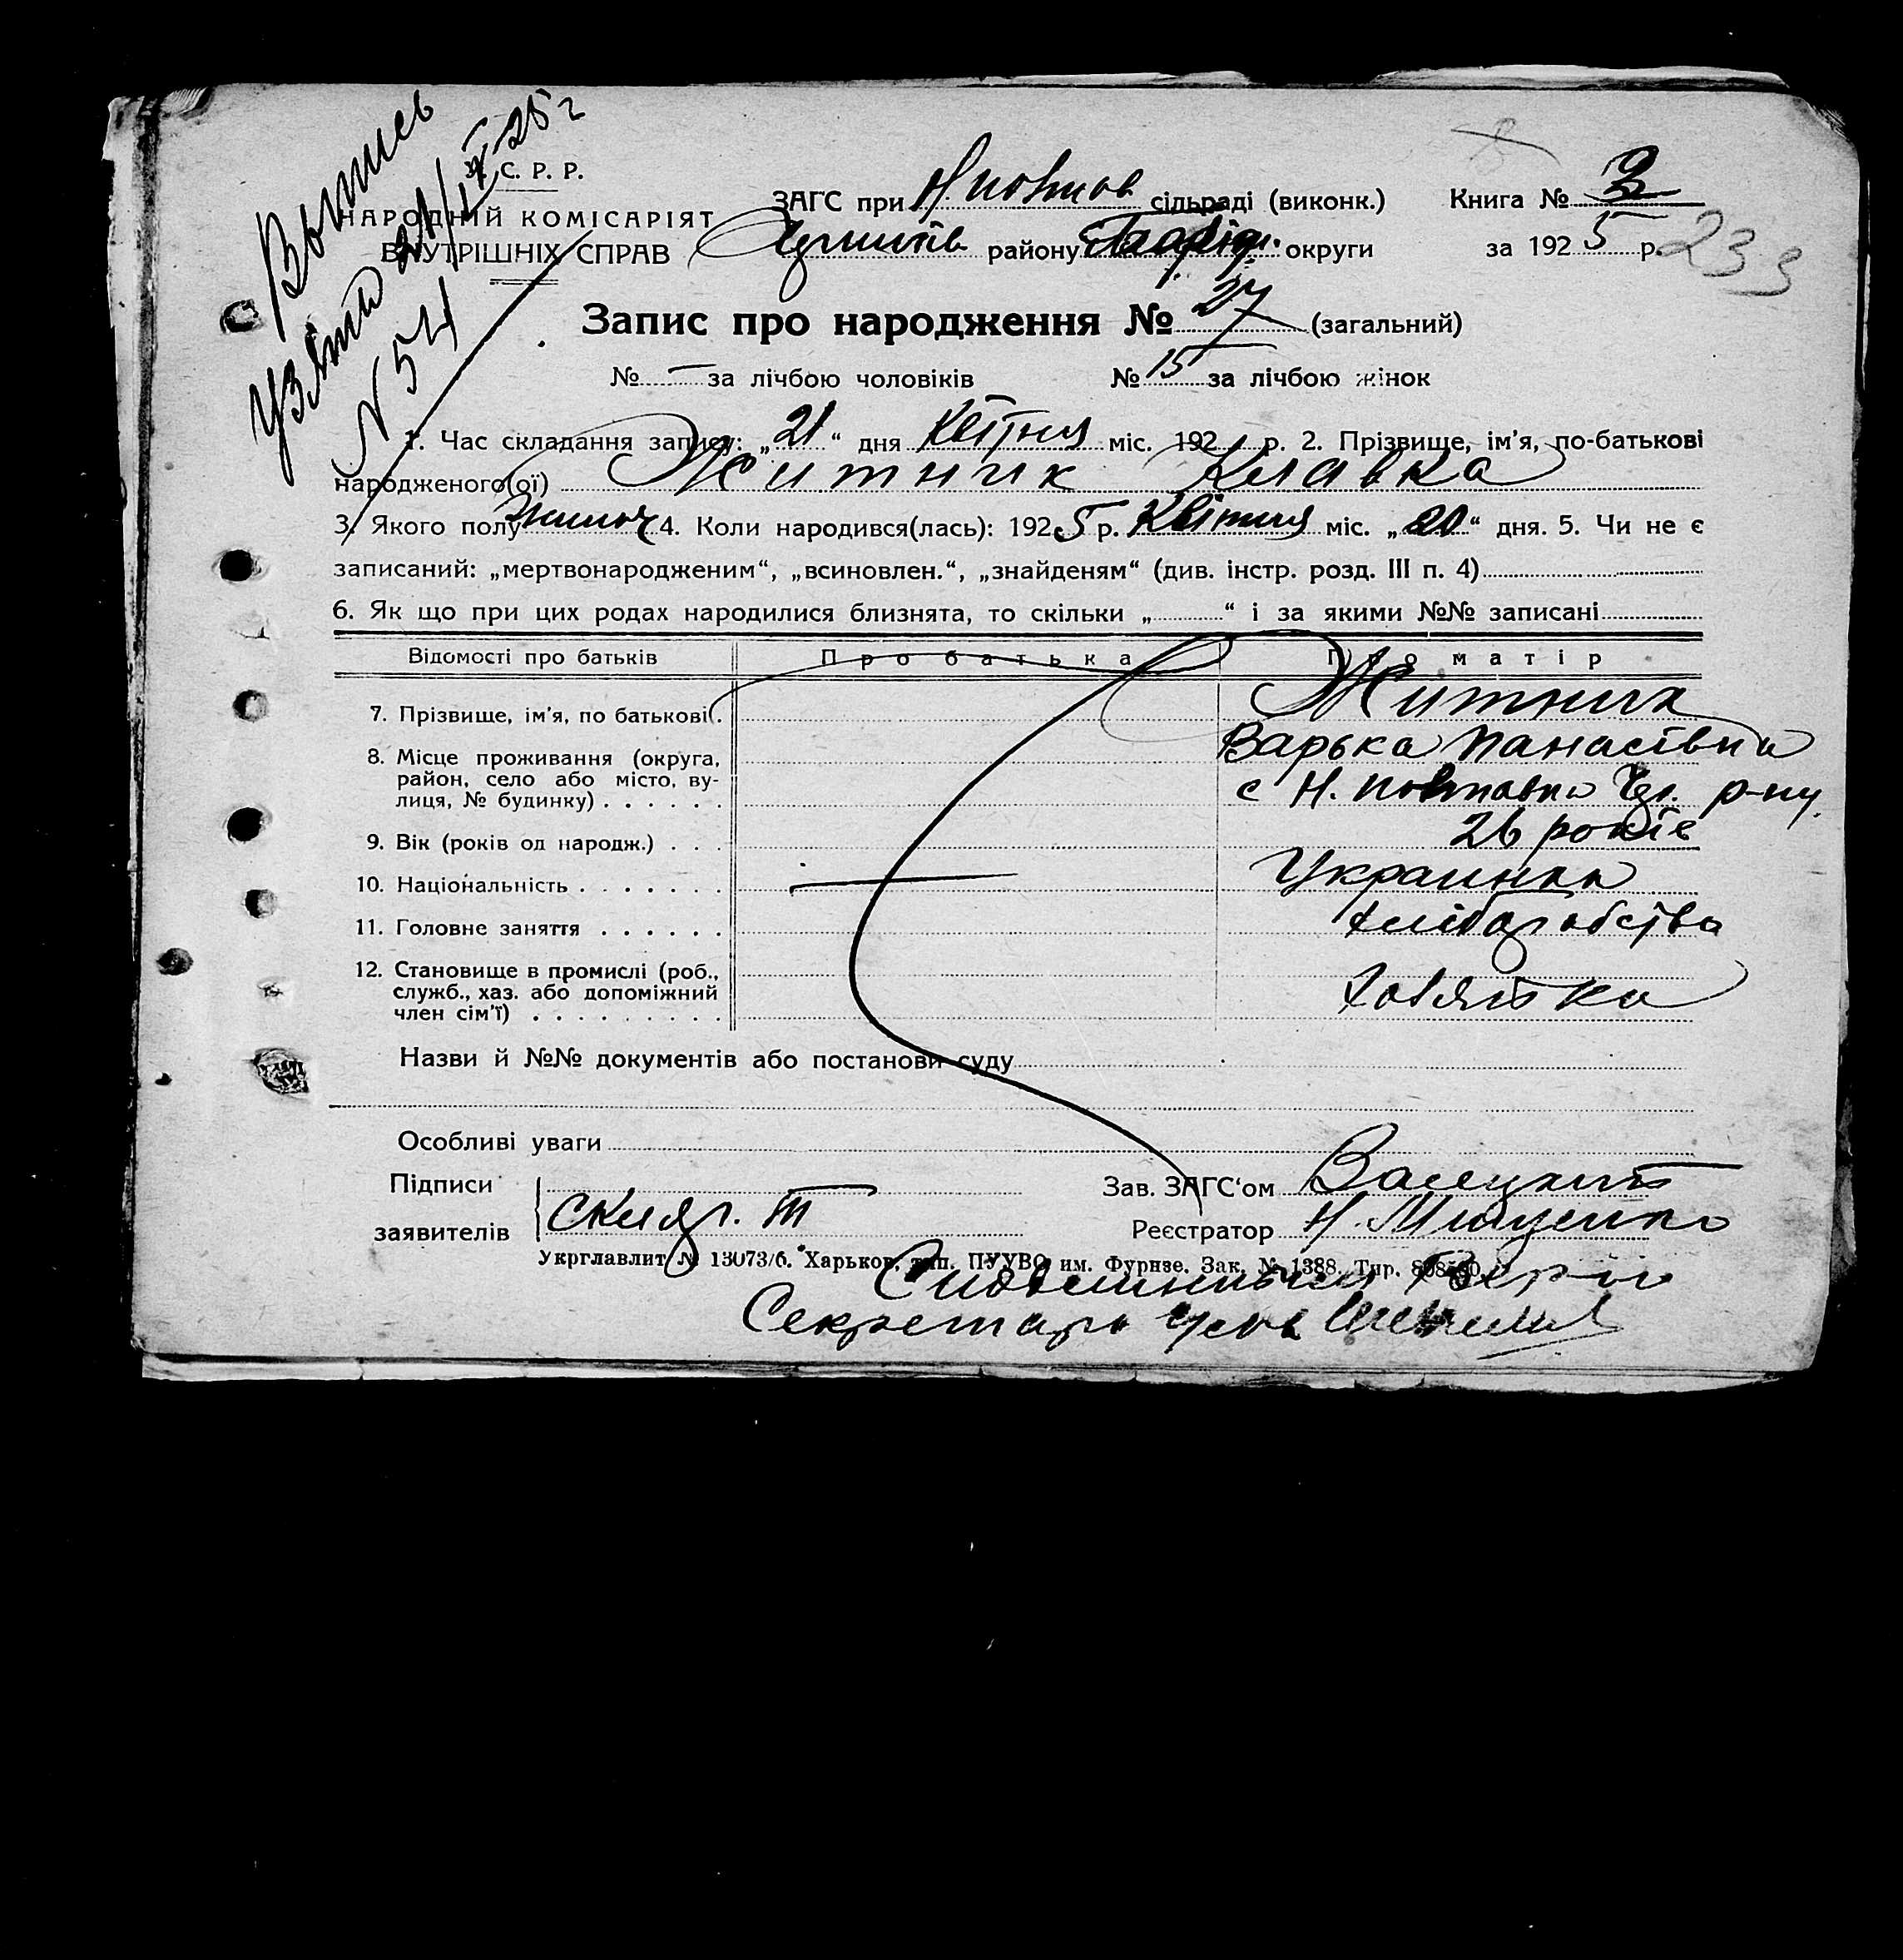 Вытись
Узято 21/IV-25 г
N 54
У. С. Р. Р.
НАРОДНІЙ КОМІСАРІЯТ
ВНУТРІШНІХ СПРАВ
ЗАГС при Н. Повтов сільраді (виконк.)
району округи
Книга № 3
за 1925 р.
233
Запис про народження № 27 (загальний)
№ — за лічбою чоловіків № 15 за лічбою жінок
1. Час складання запису: „21“ дня Квітня міс. 192 р. 2. Прізвище, ім'я, по-батькові
народженого(ої) Житник Клавка
3. Якого полу жиноч 4. Коли народився(лась): 1925 р. Квітня міс. „20“ дня. 5. Чи не є
записаний: „мертвонародженим“, „всиновлен.“, „знайденям“ (див. інстр. розд. III п. 4)
6. Як що при цих родах народилися близнята, то скільки „ “ і за якими №№ записані
Відомості про батьків Про батька Про матір
7. Прізвище, ім'я, по батькові . Житник
Варька Панасівна
8. Місце проживання (округа,
район, село або місто, ву-
лиця, № будинку) . . . . . . с Н. р-ну.
9. Вік (років од народж.) . . . 26 років
10. Національність . . . . . . . Украинка
11. Головне заняття . . . . . . хліборобства
12. Становище в промислі (роб.,
служб., хаз. або допоміжний
член сім'ї) . . . . . . . . . хазяйка
Назви й №№ документів або постанови суду
Особливі уваги
Підписи
заявителів
Зав. ЗАГС‘ом
Реєстратор Н. Мищенко
Укрглавлит № 13073/6. Харьков, тип. ПУУВО им. Фрунзе. Зак. № 1388. Тир.
Секретарь